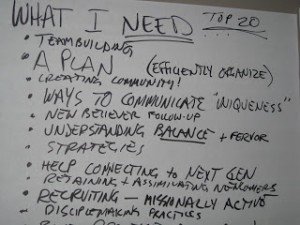 WHAT I NEED TOP 20
• TEAMBUILDING
• A PLAN (EFFICIENTLY ORGANIZE)
• CREATING COMMUNITY!
• WAYS TO COMMUNICATE "UNIQUENESS"
• NEW BELIEVER FOLLOW-UP
• UNDERSTANDING BALANCE + FERVOR
• STRATEGIES
• HELP CONNECTING to NEXT GEN
• RETAINING + ASSIMILATING NEWCOMERS
• RECRUITING — MISSIONALLY ACTIVE
• DISCIPLEMAKING PRACTICES